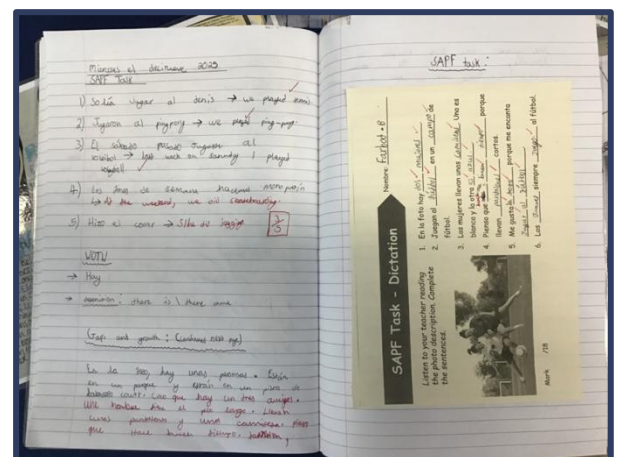 Miércoles el diecinueve 2023
SAPF Task
1) Solía jugar al tenis → we played tennis
2) Jugaron al pingpong → we played ping-pong
3) El sábado pasado jugaron al
→ last week on Saturday I played
4) Los fines de semana hacemos
the weekend, we
5) Hizo el → S/he did jogging
3
5
WOTW
→ Hay
→ : there is \ there are
Gap and growth : (Continued next pge)
En la foto, hay unas personas. Están
en un parque y están en un
court. Creo que hay un tres amigos.
Un hombre tiene el pelo largo. Llevan
unos pantalones y unas camisetas. Pienso
que hace buen tiempo.
SAPF task :
SAPF Task - Dictation
Nombre:
Listen to your teacher reading
the photo description. Complete
the sentences.
1. En la foto hay dos mujeres
2. Juegan al fútbol en un campo de
fútbol.
3. Las mujeres llevan unas camisetas. Una es
blanca y la otra es azul.
4. Pienso que hace buen tiempo porque
llevan pantalones cortos.
5. Me gusta la foto porque me encanta
jugar al fútbol.
6. Los siempre juego al fútbol.
Mark /18